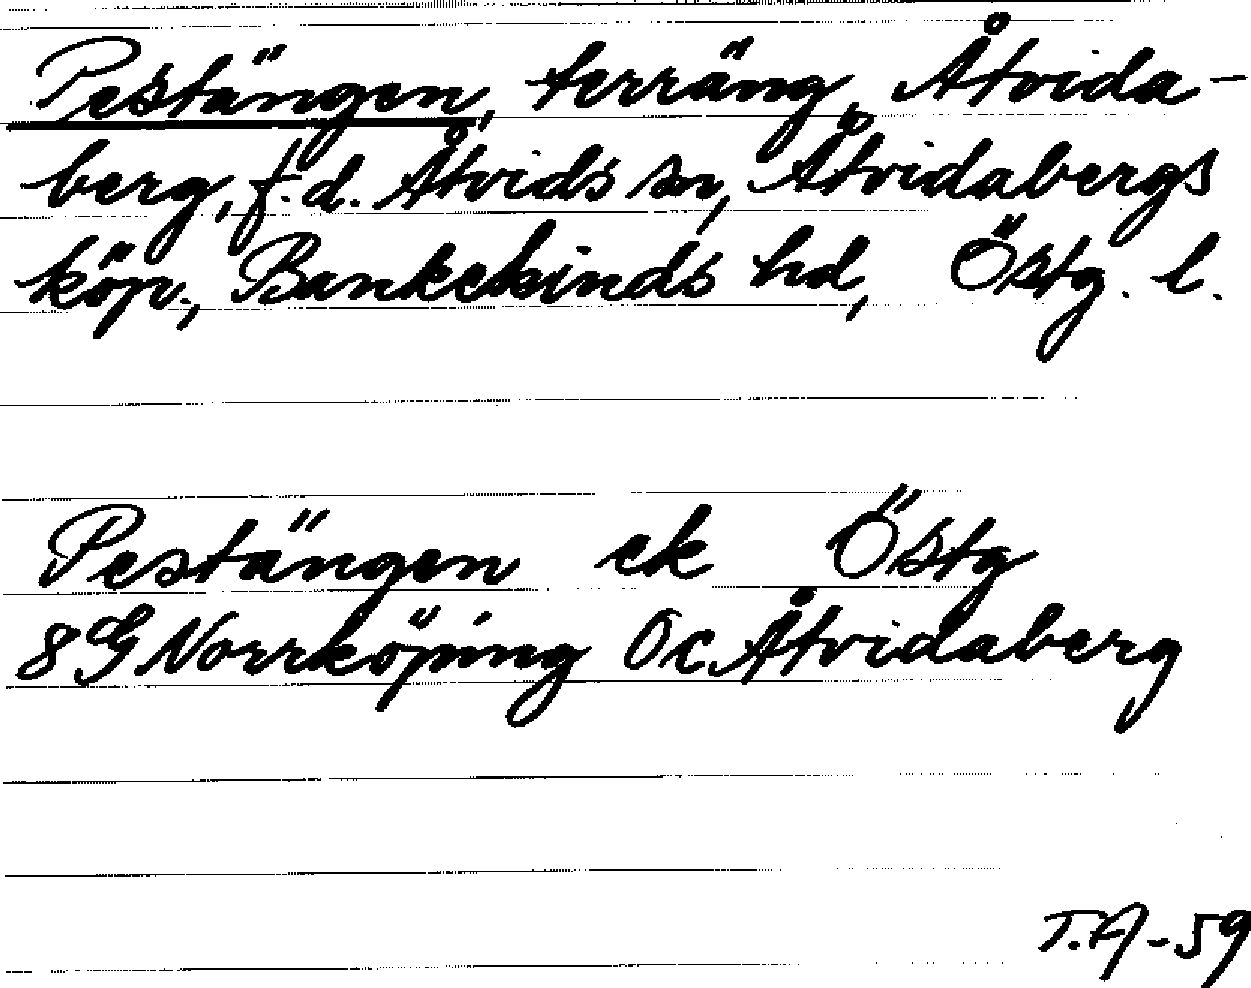 Pestängen, terräng, Åtvida-
berg, f.d. Åtvids sn, Åtvidabergs
köp., Bankekinds hd, Östg. l.
Pestängen ek Östg
8G Norrköping Oc Åtvidaberg
T.A-59